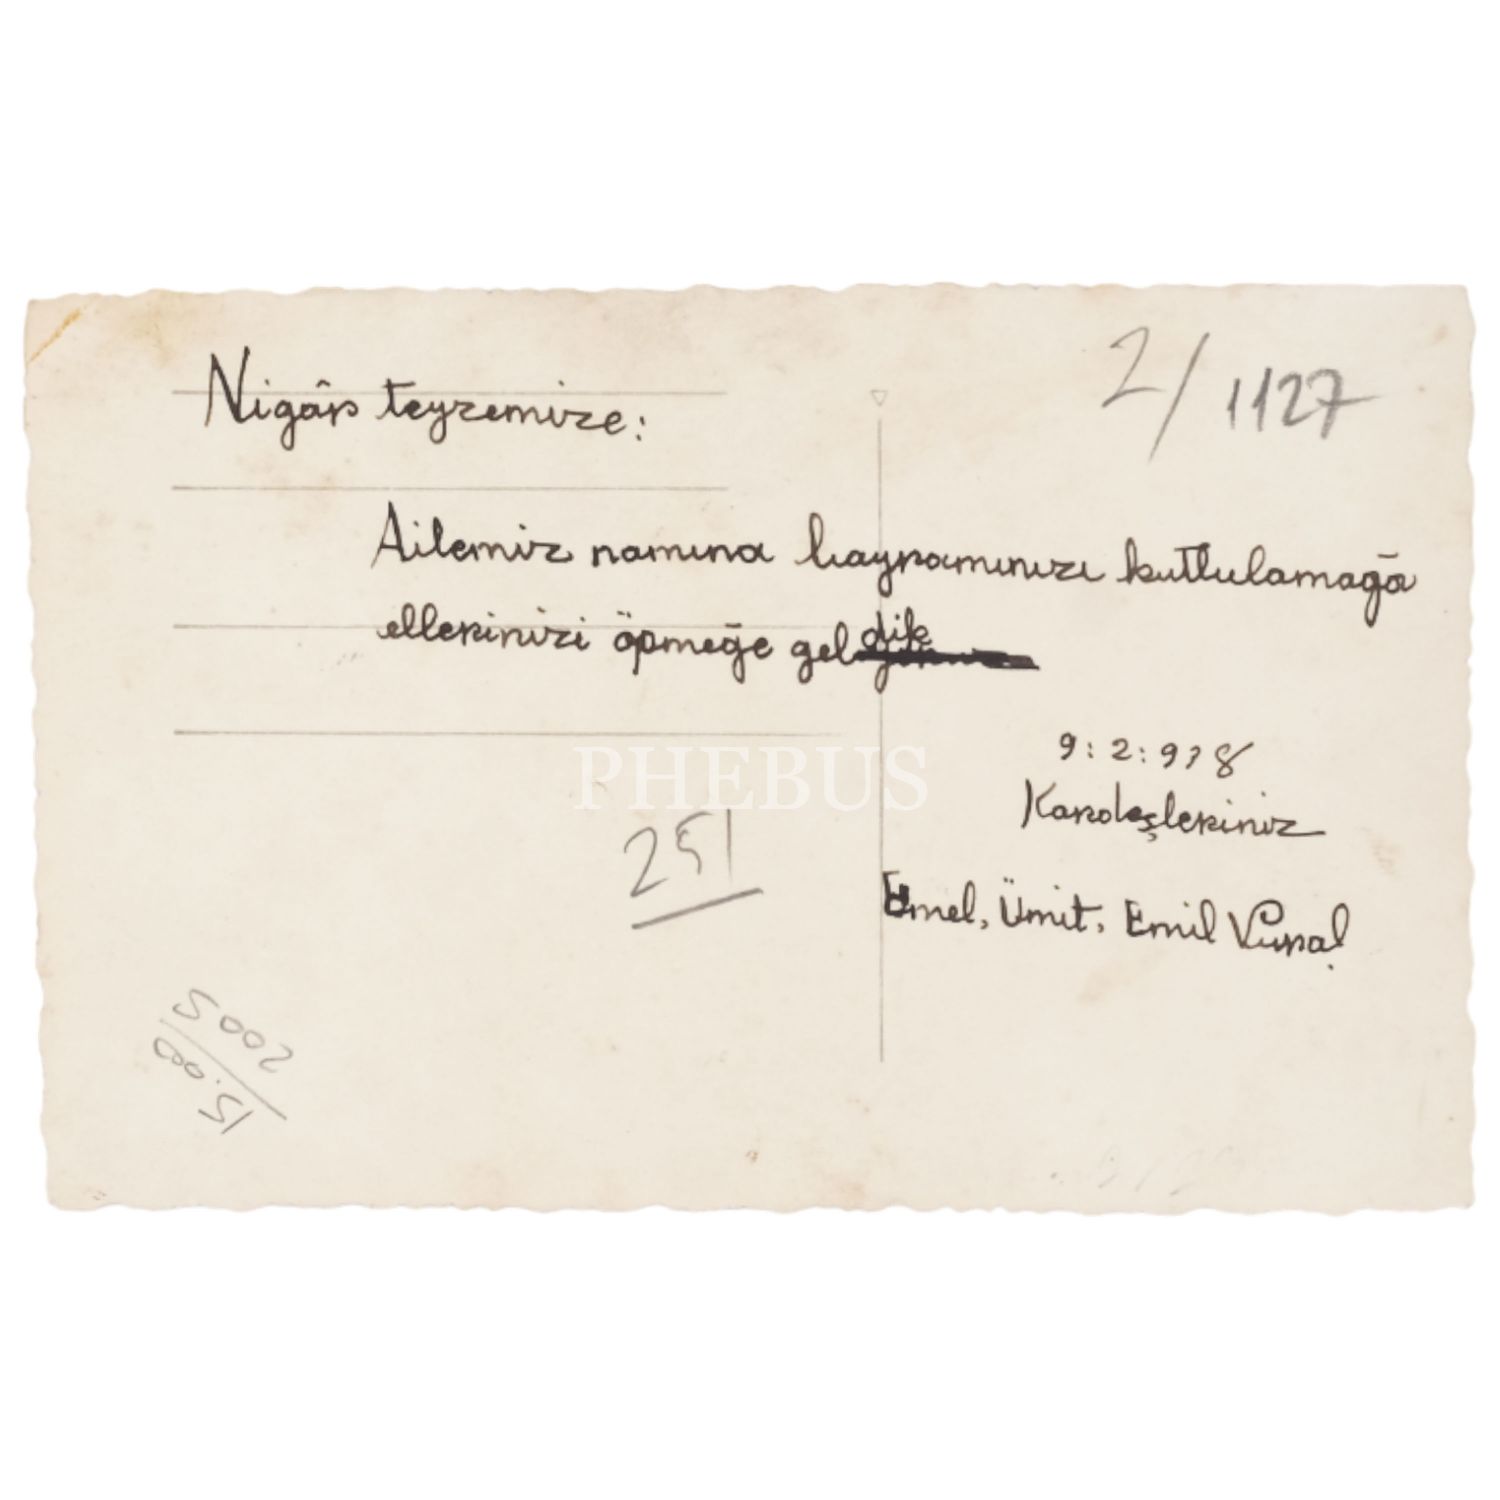 2/1127
Nigâr teyzemize:
Ailemiz namına bayramınızı kutlulamağa
ellerinizi öpmeğe geldik
9:2:938
Kardeşleriniz
PHEBUS
251
Emel, Ümit, Emil Vural
2005
15.00